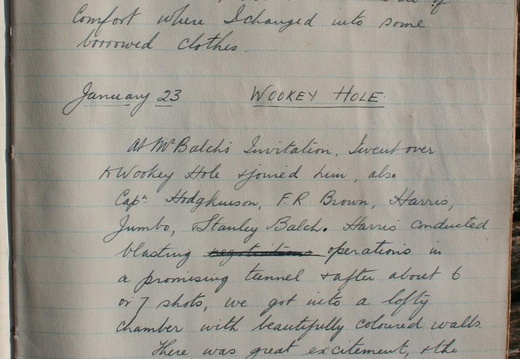 comfort where I changed into some
borrowed clothes.
January 23 WOOKEY HOLE
At Mr Balch's Invitation, I went over
to Wookey Hole & joined him, also
Capn Hodgkinson, F.R. Brown, Harris,
Jumbo, & Stanley Balch. Harris conducted
blasting operations in
a promising tunnel & after about 6
or 7 shots, we got into a lofty
chamber with beautifully coloured walls.
There was great excitement, & the